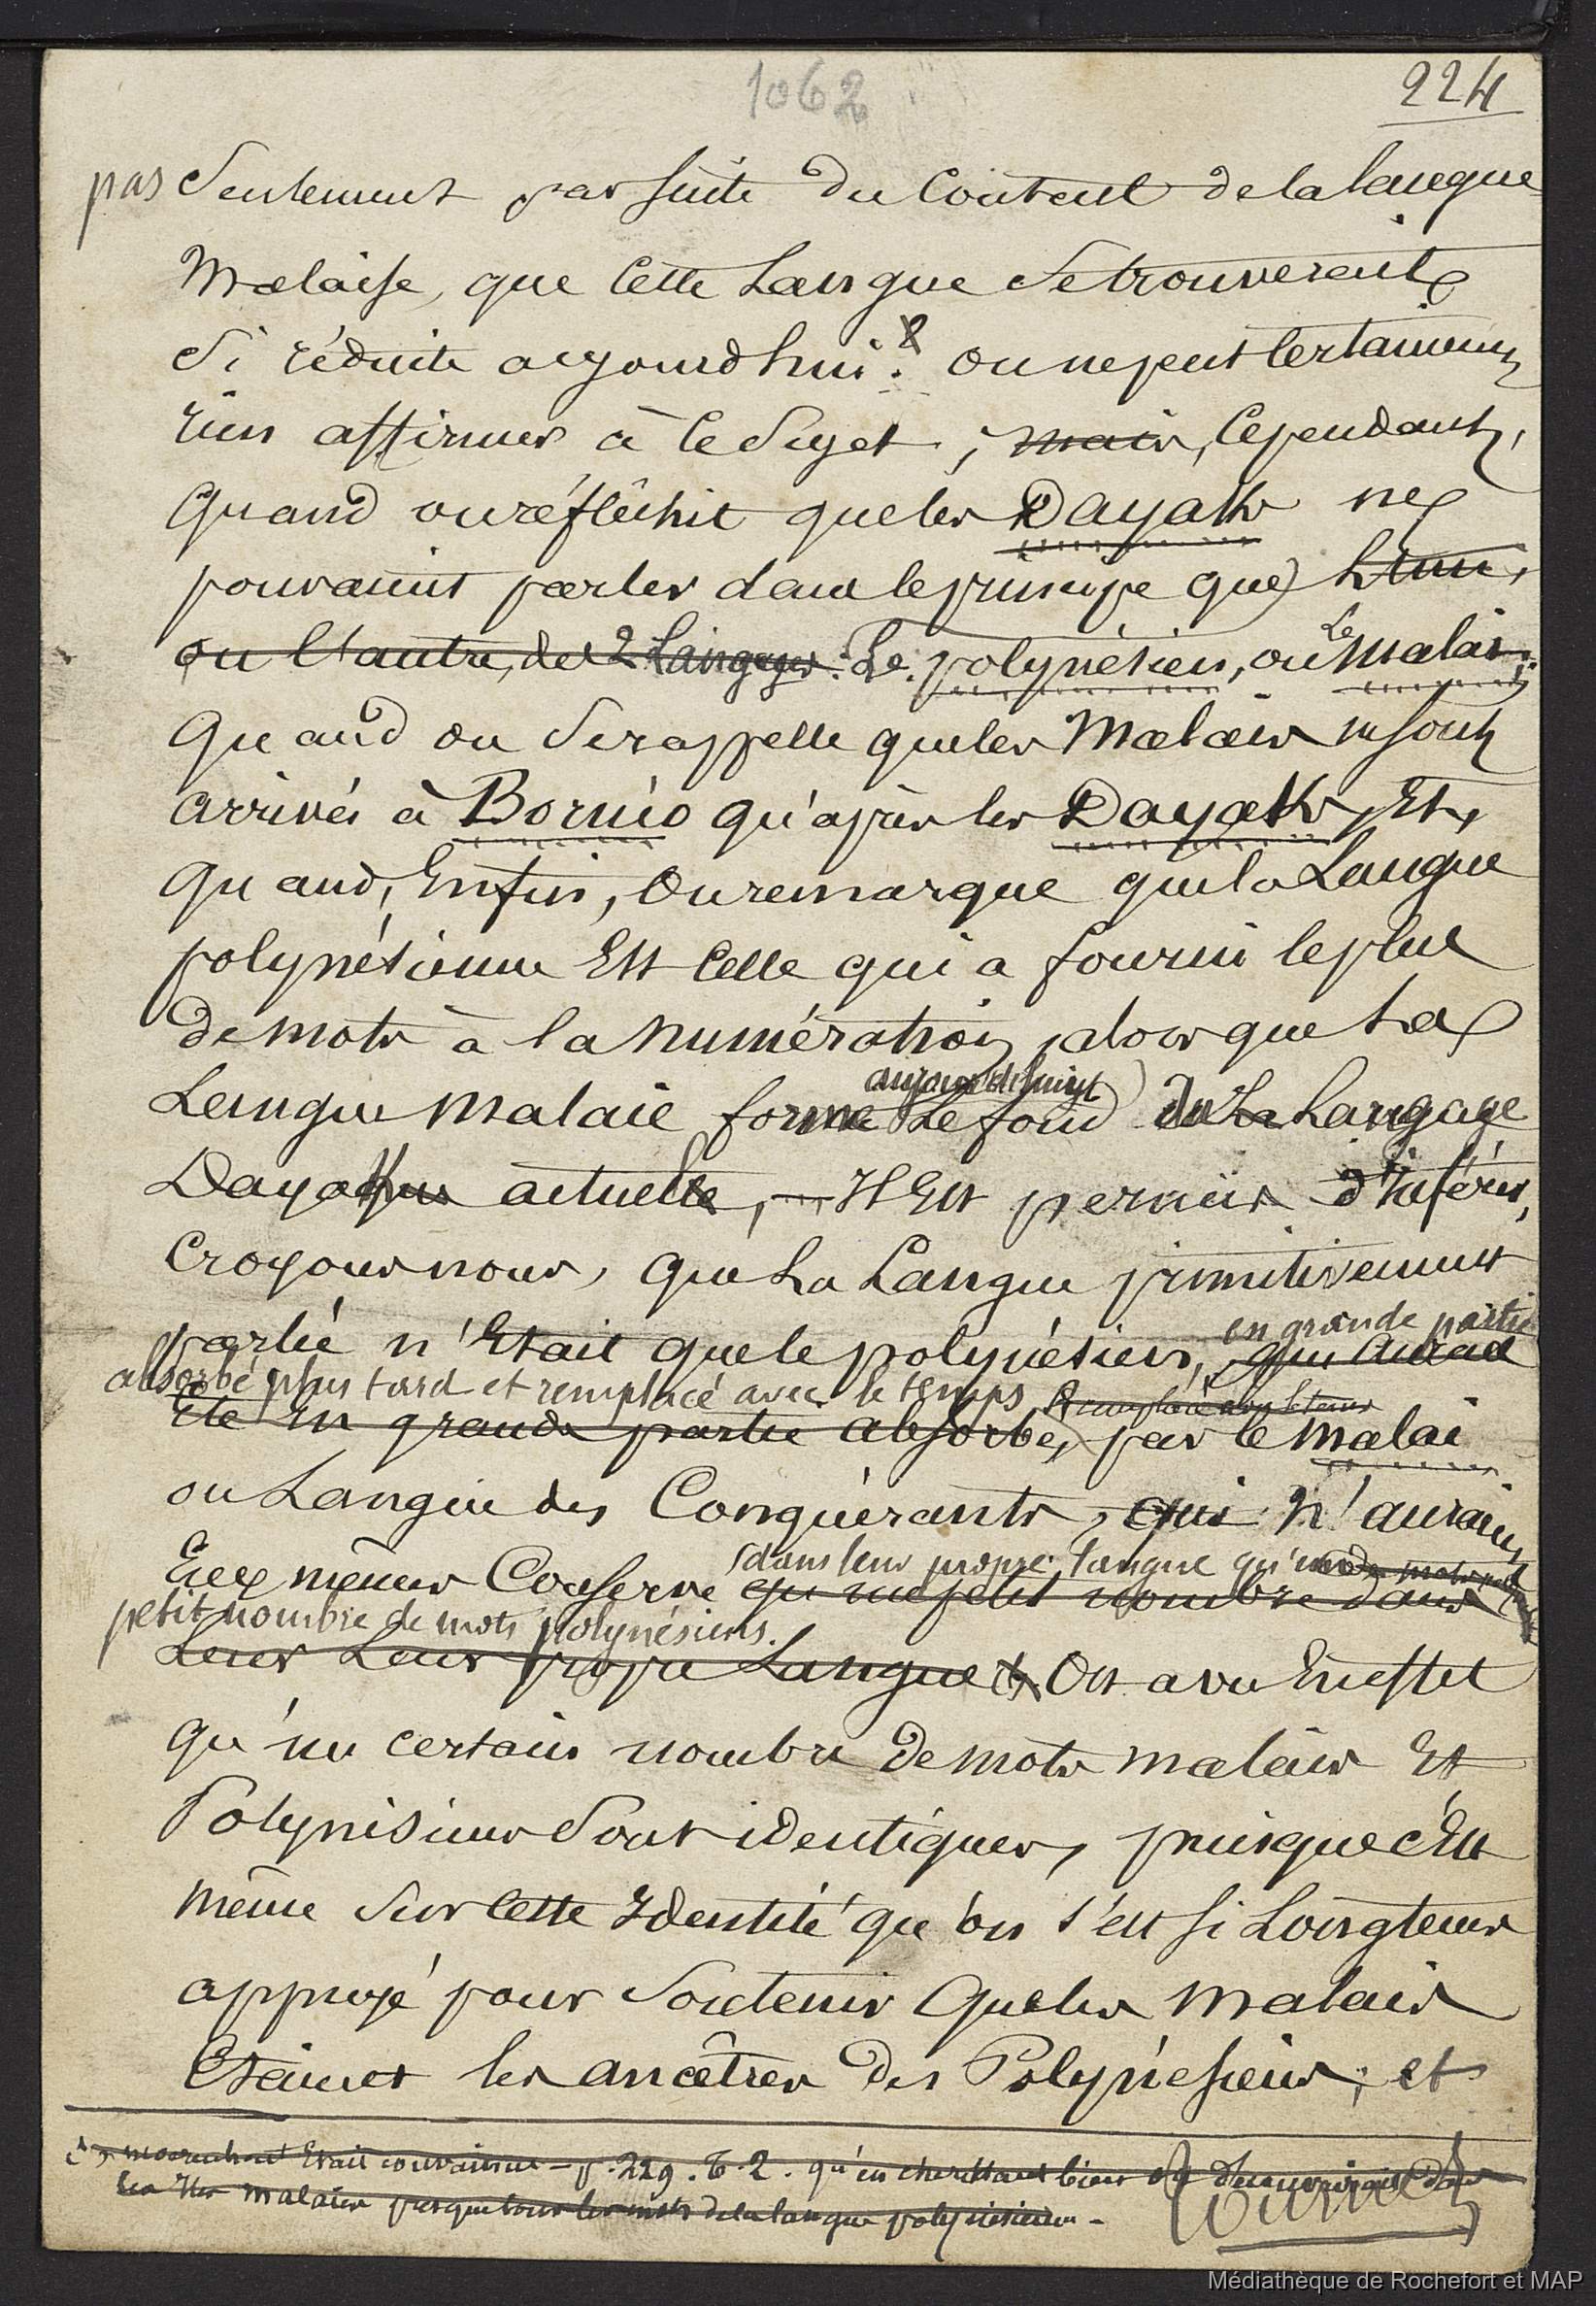 1062
224
pas seulement par suite du contact de la langue
malaise, que cette langue se trouverait
si réduite aujourd'hui ? On ne peut certainement
rien affirmer à ce sujet ; mais, cependant,
quand on réfléchit que les Dayaks ne
pouvaient parler dans le principe que l'une,
ou l'autre, des 2 langages : Le polynésien, ou le malai ;
quand on se rappelle que les Malais ne sont
arrivés à Bornéo qu'après les Dayaks, Et,
quand, Enfin, on remarque que la Langue
polynésienne Est celle qui a fourni le plus
de mots à la numération, alors que la
aujourd'hui
Langue malaie forme le fond du La Langage
Dayak actuelle, — Il Est permis d'inférer,
croyons nous, que La Langue primitivement
en grande partie
parlée n'Etait que le polynésien, qui aurait
absorbé plus tard et remplacé avec le temps
remplacé avec le temps
Eté En grande partie absorbé, par le malai
ou Langue des Conquérants, qui n'auraient
dans leur propre langue qu'un
Eux mêmes Conservé qu'un petit nombre dans
petit nombre de mots polynésiens.
Leur Leur propre Langue. On a vu En effet
qu'un certain nombre de mots malais Et
Polynésiens sont identiques, puisque c'Est
même sur cette Identité qu'on s'est si Longtems
appuyé pour soutenir que les malais
Etaient les ancêtres des Polynésiens ; et
Etait convaincu — p. 229. T. 2. qu'en cherchant bien on découvrirait dans
les Iles malaises presque tous les mots de la langue polynésienne —
tournez
Médiathèque de Rochefort et MAP